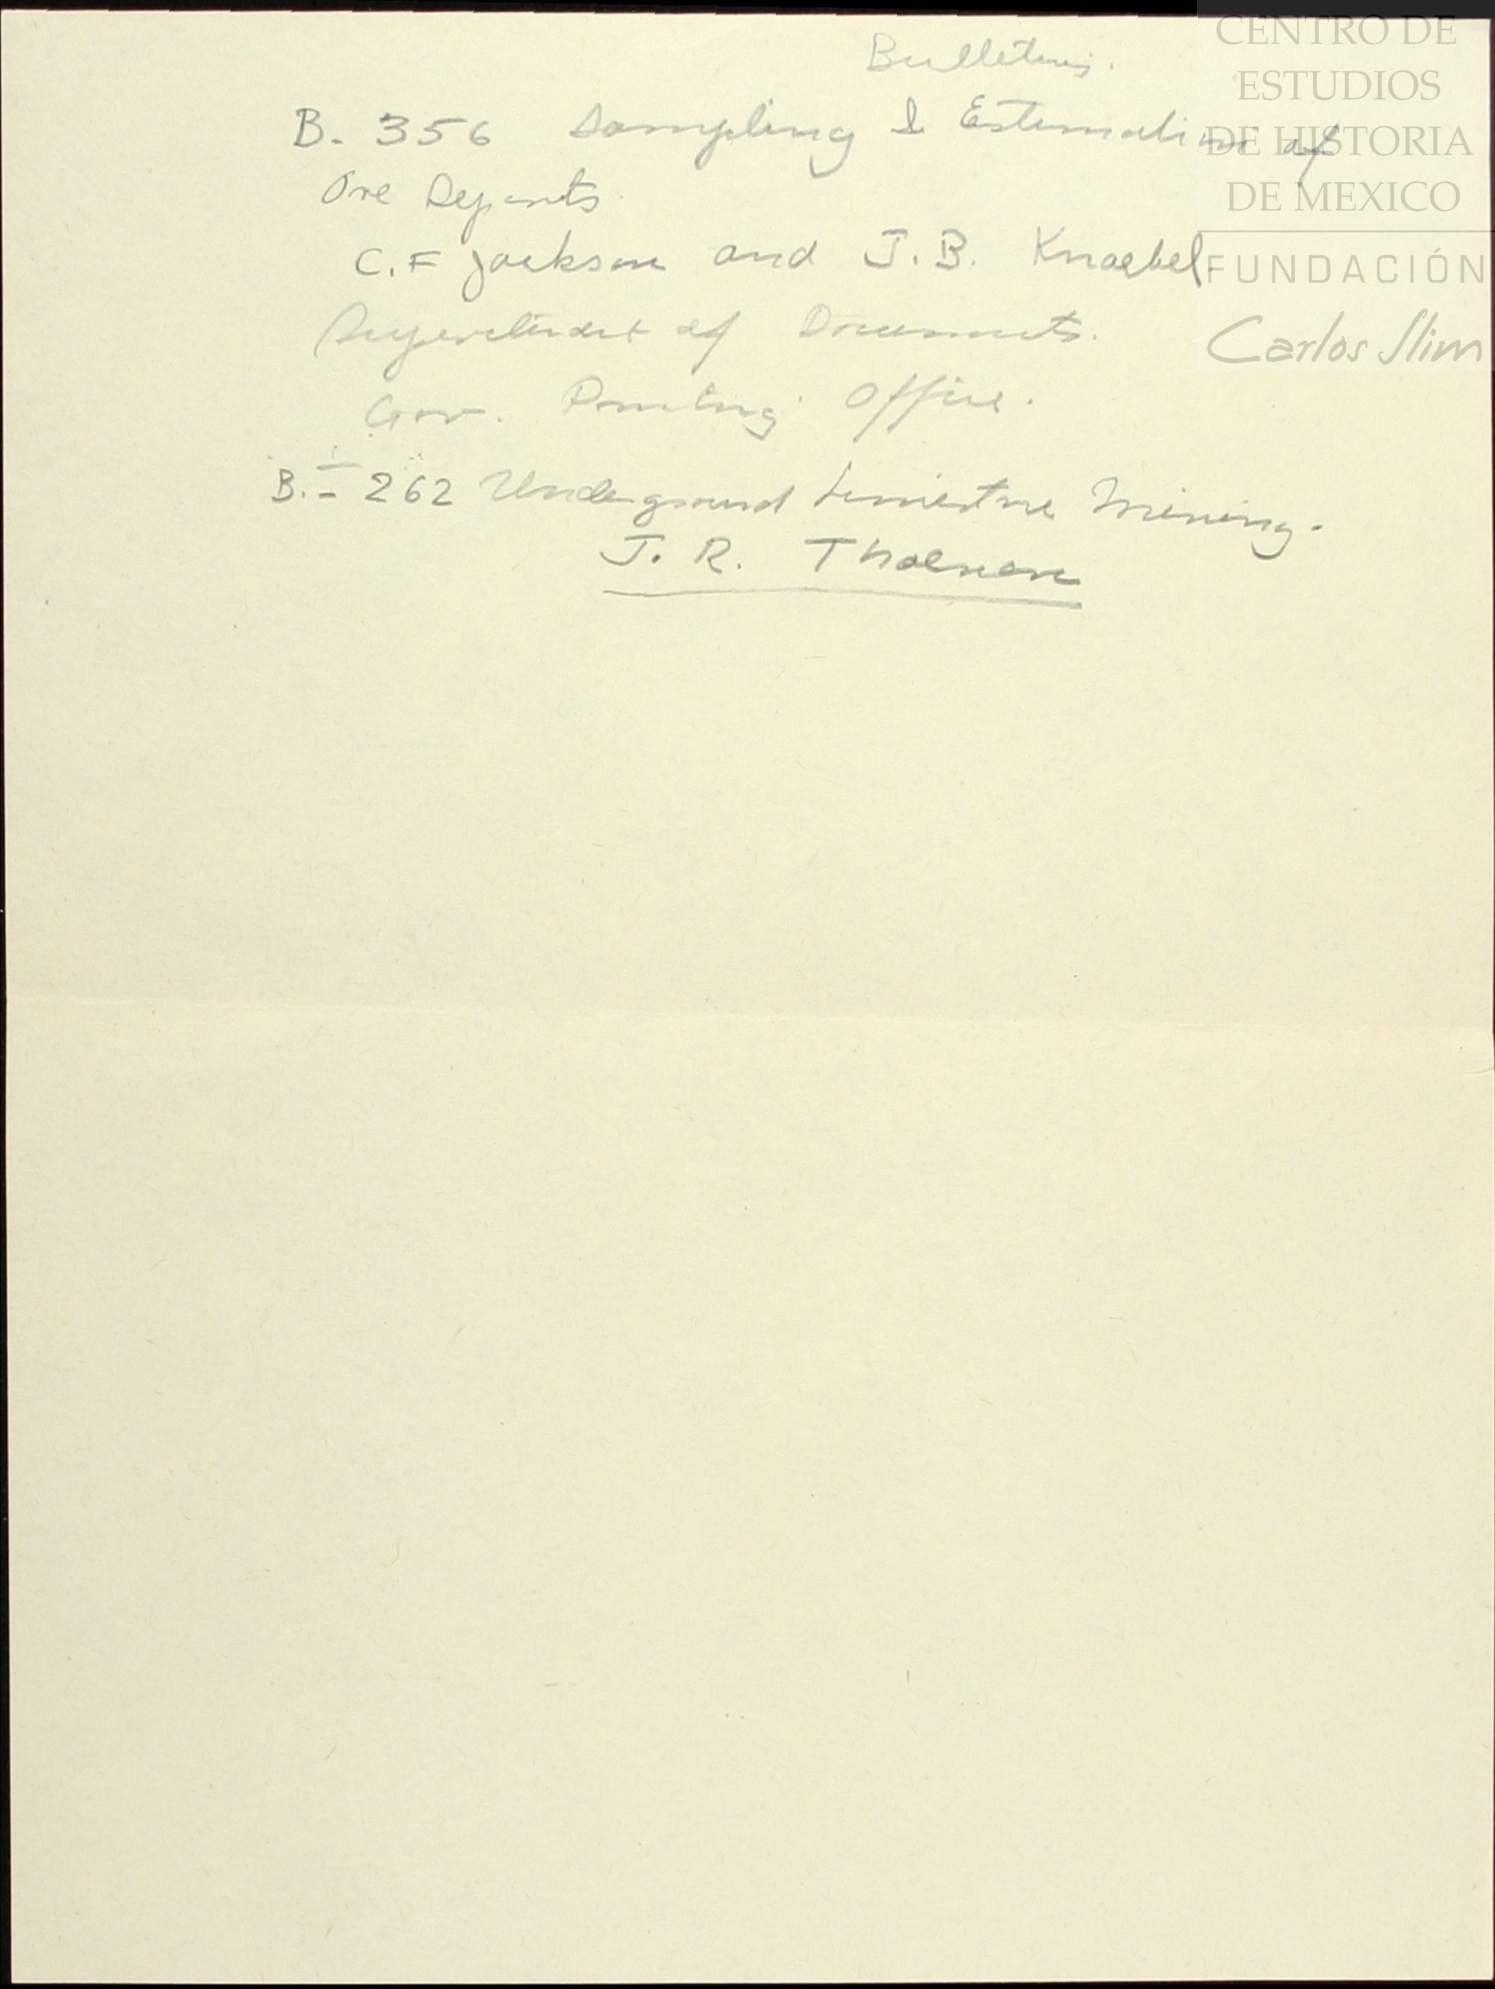 Bulletins.
B. 356 Sampling & Estimation of
Ore Deposits
C.F Jackson and J.B. Knaebel
Superintendent of Documents.
Gov. Printing Office.
B.- 262 Underground Limestone Mining.
J. R. Thoenen
CENTRO DE
ESTUDIOS
DE HISTORIA
DE MEXICO
FUNDACIÓN
Carlos Slim